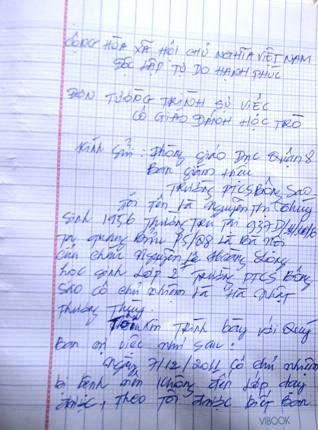 CỘNG HÒA XÃ HỘI CHỦ NGHĨA VIỆT NAM
ĐỘC LẬP TỰ DO HẠNH PHÚC
ĐƠN TƯỜNG TRÌNH SỰ VIỆC
CÔ GIÁO ĐÁNH HỌC TRÒ
Kính gửi: Phòng giáo Dục Quận 8
Ban giám hiệu
Trường PTCS Bông Sao
Tôi tên là Nguyễn Thị
sinh 1956 Thường Trú tại 937D
Tạ Quang Bửu F5/Q8 là Bà Nội
của cháu Nguyễn Hương
học sinh Lớp 2 Trường PTCS Bông
Sao cô chủ nhiệm là Hà Nhật
Phương Thùy.
Tôi xin Trình bày với Quý
Ban sự việc như sau:
Ngày 7/12/2011 cô chủ nhiệm
bị bệnh nên không đến lớp dạy
được, theo tôi được biết Ban
VIBOOK